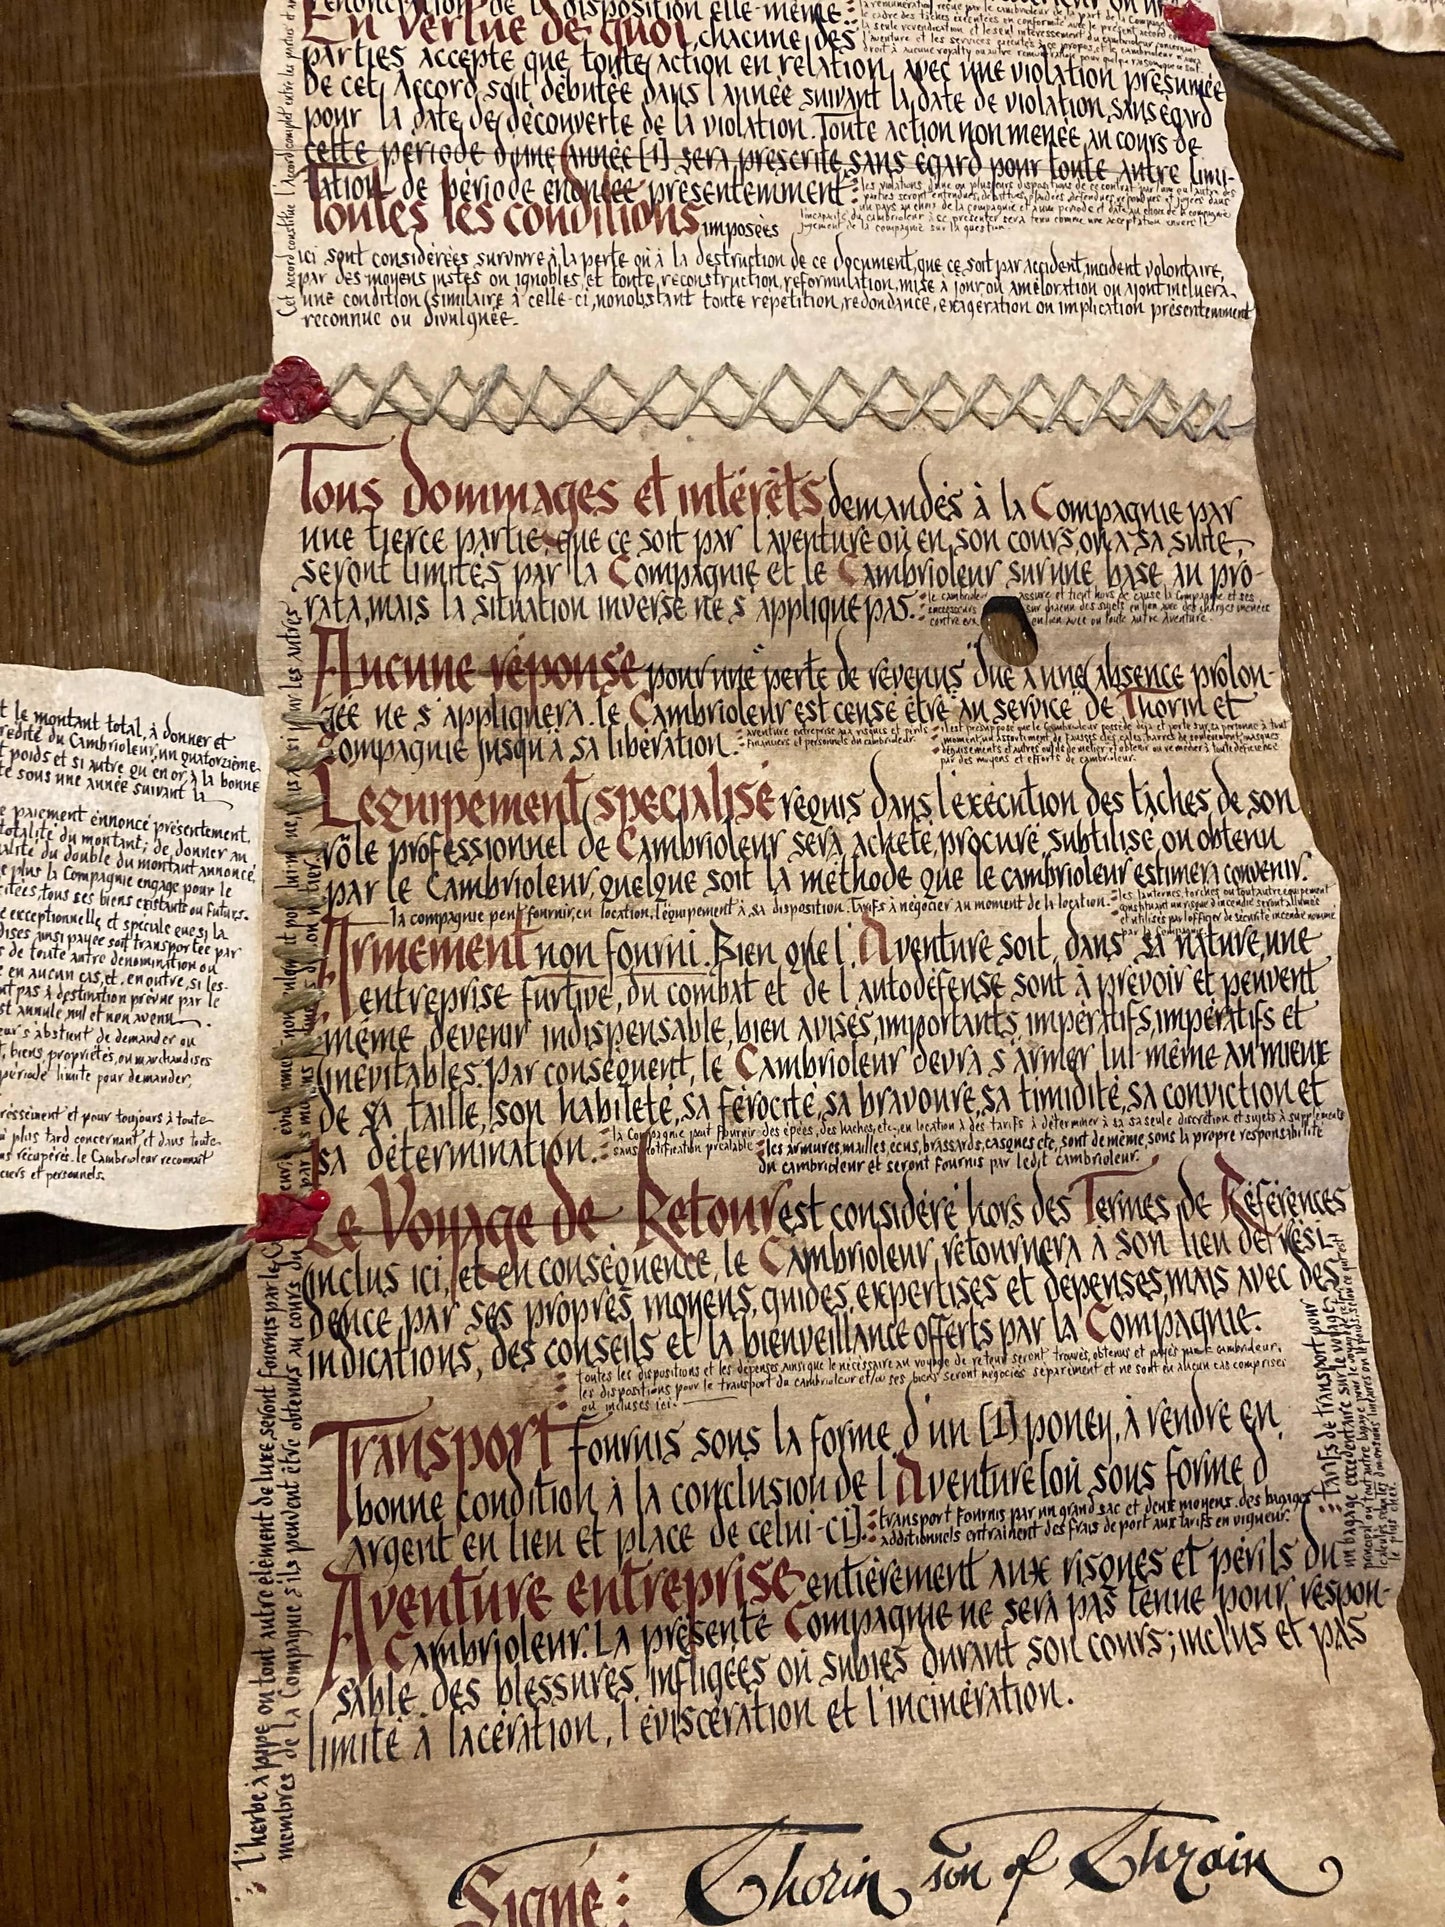 énonciation de la disposition elle-même.
En vertue de quoi, chacune des
parties accepte que toute action en relation avec une violation présumée
de cet Accord soit débutée dans l'année suivant la date de violation, sans égard
pour la date de découverte de la violation. Toute action non menée au cours de
cette période d'une année [1] sera prescrite, sans égard pour toute autre limi-
tation de période énoncée présentemment.
les violations d'une ou plusieurs dispositions de ce contrat par l'une ou l'autre des
parties seront entendues, débattues, plaidées, défendues, répondues et jugées dans
un pays au choix de la compagnie et à une période et date au choix de la compagnie
l'incapacité du cambrioleur à se présenter sera tenu comme une acceptation envers le
jugement de la compagnie sur la question.
Toutes les conditions imposées
ici sont considérées survivre à la perte ou à la destruction de ce document, que ce soit par accident, incident volontaire,
par des moyens justes ou ignobles, et toute reconstruction, reformulation, mise à jour ou amélioration ou ajout incluera
une condition similaire à celle-ci, nonobstant toute répétition, redondance, exagération ou implication présentemment
reconnue ou divulguée.
Tous dommages et intérêts demandés à la Compagnie par
une tierce partie, que ce soit par l'aventure ou en son cours, ou à sa suite,
seront limités par la Compagnie et le Cambrioleur sur une base au pro-
rata, mais la situation inverse ne s'applique pas.
le cambrioleur assure et tient hors de cause la Compagnie et ses
successeurs sur chacun des sujets en lien avec des charges menées
contre eux en lien avec ou toute autre Aventure.
Aucune réponse pour une "perte de revenus" due à une absence prolon-
gée ne s'appliquera. Le Cambrioleur est censé être "au service" de Thorin et
Compagnie jusqu'à sa libération.
aventure entreprise aux risques et périls
financiers et personnels du cambrioleur.
il est présupposé que le Cambrioleur possède déjà et porte sur sa personne à tout
moment, un assortiment de fausses clés, cales, barres de soulèvement, masques,
déguisements et autres outils de métier et obtenir ou remédier à toute déficience
par des moyens et efforts de cambrioleur.
L'équipement spécialisé requis dans l'exécution des tâches de son
rôle professionnel de Cambrioleur sera acheté, procuré, subtilisé ou obtenu
par le Cambrioleur, quelque soit la méthode que le cambrioleur estimera convenir.
la compagnie peut fournir, en location, l'équipement à sa disposition. Tarifs à négocier au moment de la location.
les lanternes, torches ou tout autre équipement
constituant un risque d'incendie seront allumés
et utilisés par l'officier de sécurité incendie nommé
par la Compagnie.
Armement non fourni. Bien que l'Aventure soit, dans sa nature, une
entreprise furtive, du combat et de l'autodéfense sont à prévoir et peuvent
même devenir indispensable, bien avisés, importants, impératifs, impératifs et
inévitables. Par conséquent, le Cambrioleur devra s'armer lui-même au mieux
de sa taille, son habileté, sa férocité, sa bravoure, sa timidité, sa conviction et
sa détermination.
la Compagnie peut fournir des épées, des haches, etc., en location à des tarifs à déterminer à sa seule discrétion et sujets à suppléments
sans notification préalable
les armures, mailles, écus, brassards, casques etc, sont de même, sous la propre responsabilité
du cambrioleur et seront fournis par ledit cambrioleur.
Le Voyage de Retour est considéré hors des Termes de Références
inclus ici, et en conséquence, le Cambrioleur retournera à son lieu de rési-
dence par ses propres moyens, guides, expertises et dépenses, mais avec des
indications, des conseils et la bienveillance offerts par la Compagnie.
toutes les dispositions et les dépenses, ainsi que le nécessaire au voyage de retour seront trouvés, obtenus et payés par le cambrioleur.
les dispositions pour le transport du cambrioleur et/ou ses biens seront négociés séparément et ne sont en aucun cas comprises
ou incluses ici.
Transport fournis sous la forme d'un [1] poney, à rendre en
bonne condition à la conclusion de l'Aventure [où sous forme d'
argent en lieu et place de celui-ci].
transport fournis par un grand sac et deux moyens. des bagages
additionnels entraînent des frais de port aux tarifs en vigueur.
Aventure entreprise entièrement aux risques et périls du
Cambrioleur. La présente Compagnie ne sera pas tenue pour respon-
sable des blessures infligées ou subies durant son cours; inclus et pas
limité à lacération, l'éviscération et l'incinération.
Signé: Thorin son of Thrain
Cet accord constitue l'Accord complet entre les parties
l'herbe à pipe ou tout autre élément de luxe, seront fournis par le C
membres de la Compagnie s'ils peuvent être obtenus au cours du
tarifs de transport pour
un bagage excédentaire sur le voyage
t le montant total, à donner et
crédité du Cambrioleur, un quatorzième
t poids et si autre qu'en or, à la bonne
té sous une année suivant la
e paiement énnoncé présentement,
totalité du montant; de donner au
alité du double du montant annoncé,
e plus la Compagnie engage pour le
citées, tous ses biens existants ou futurs.
e exceptionnelle et spéciale que si la
dises ainsi payée soit transportée par
s de toute autre dénomination ou
e en aucun cas, et, en outre, si les-
nt pas à destination prévue par le
st annulé, nul et non avenu.
eur s'abstient de demander ou
t, biens, propriétés, ou marchandises
période limite pour demander,
ressément et pour toujours à toute
i plus tard concernant, et dans toute
ns récupérés. le Cambrioleur reconnaît
ciers et personnels.